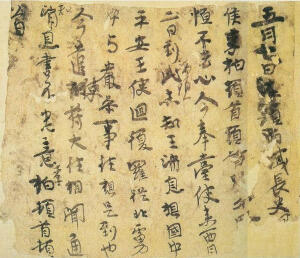 五月七日海頭西域長史
侯李柏頓首頓首
恒不去心今奉臺使來西月
二日到此未知王消息想國中
平安王使迴復羅從北虜
中与嚴參事往想是到也
今遣使苻大往相聞通
消息書不悉意柏頓首頓
首